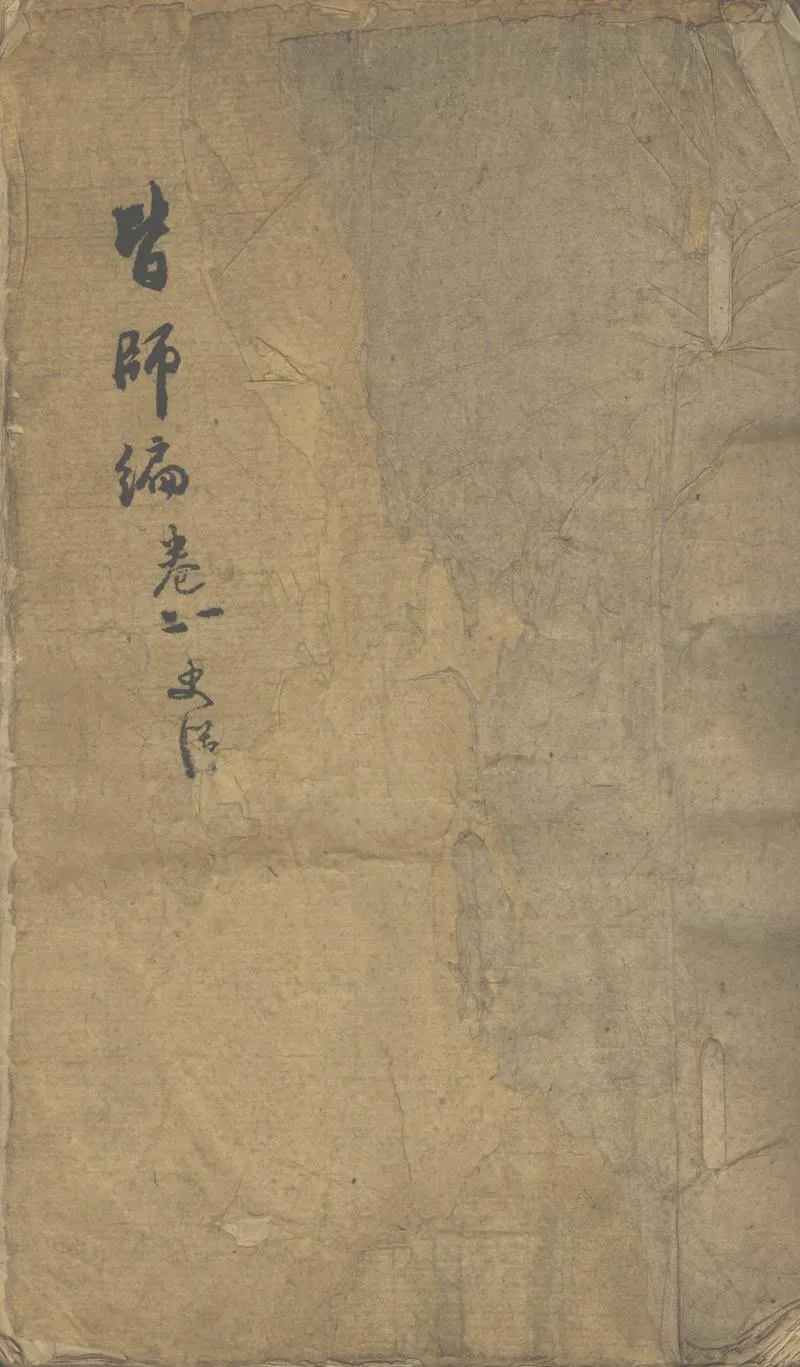 皆師編卷二 史